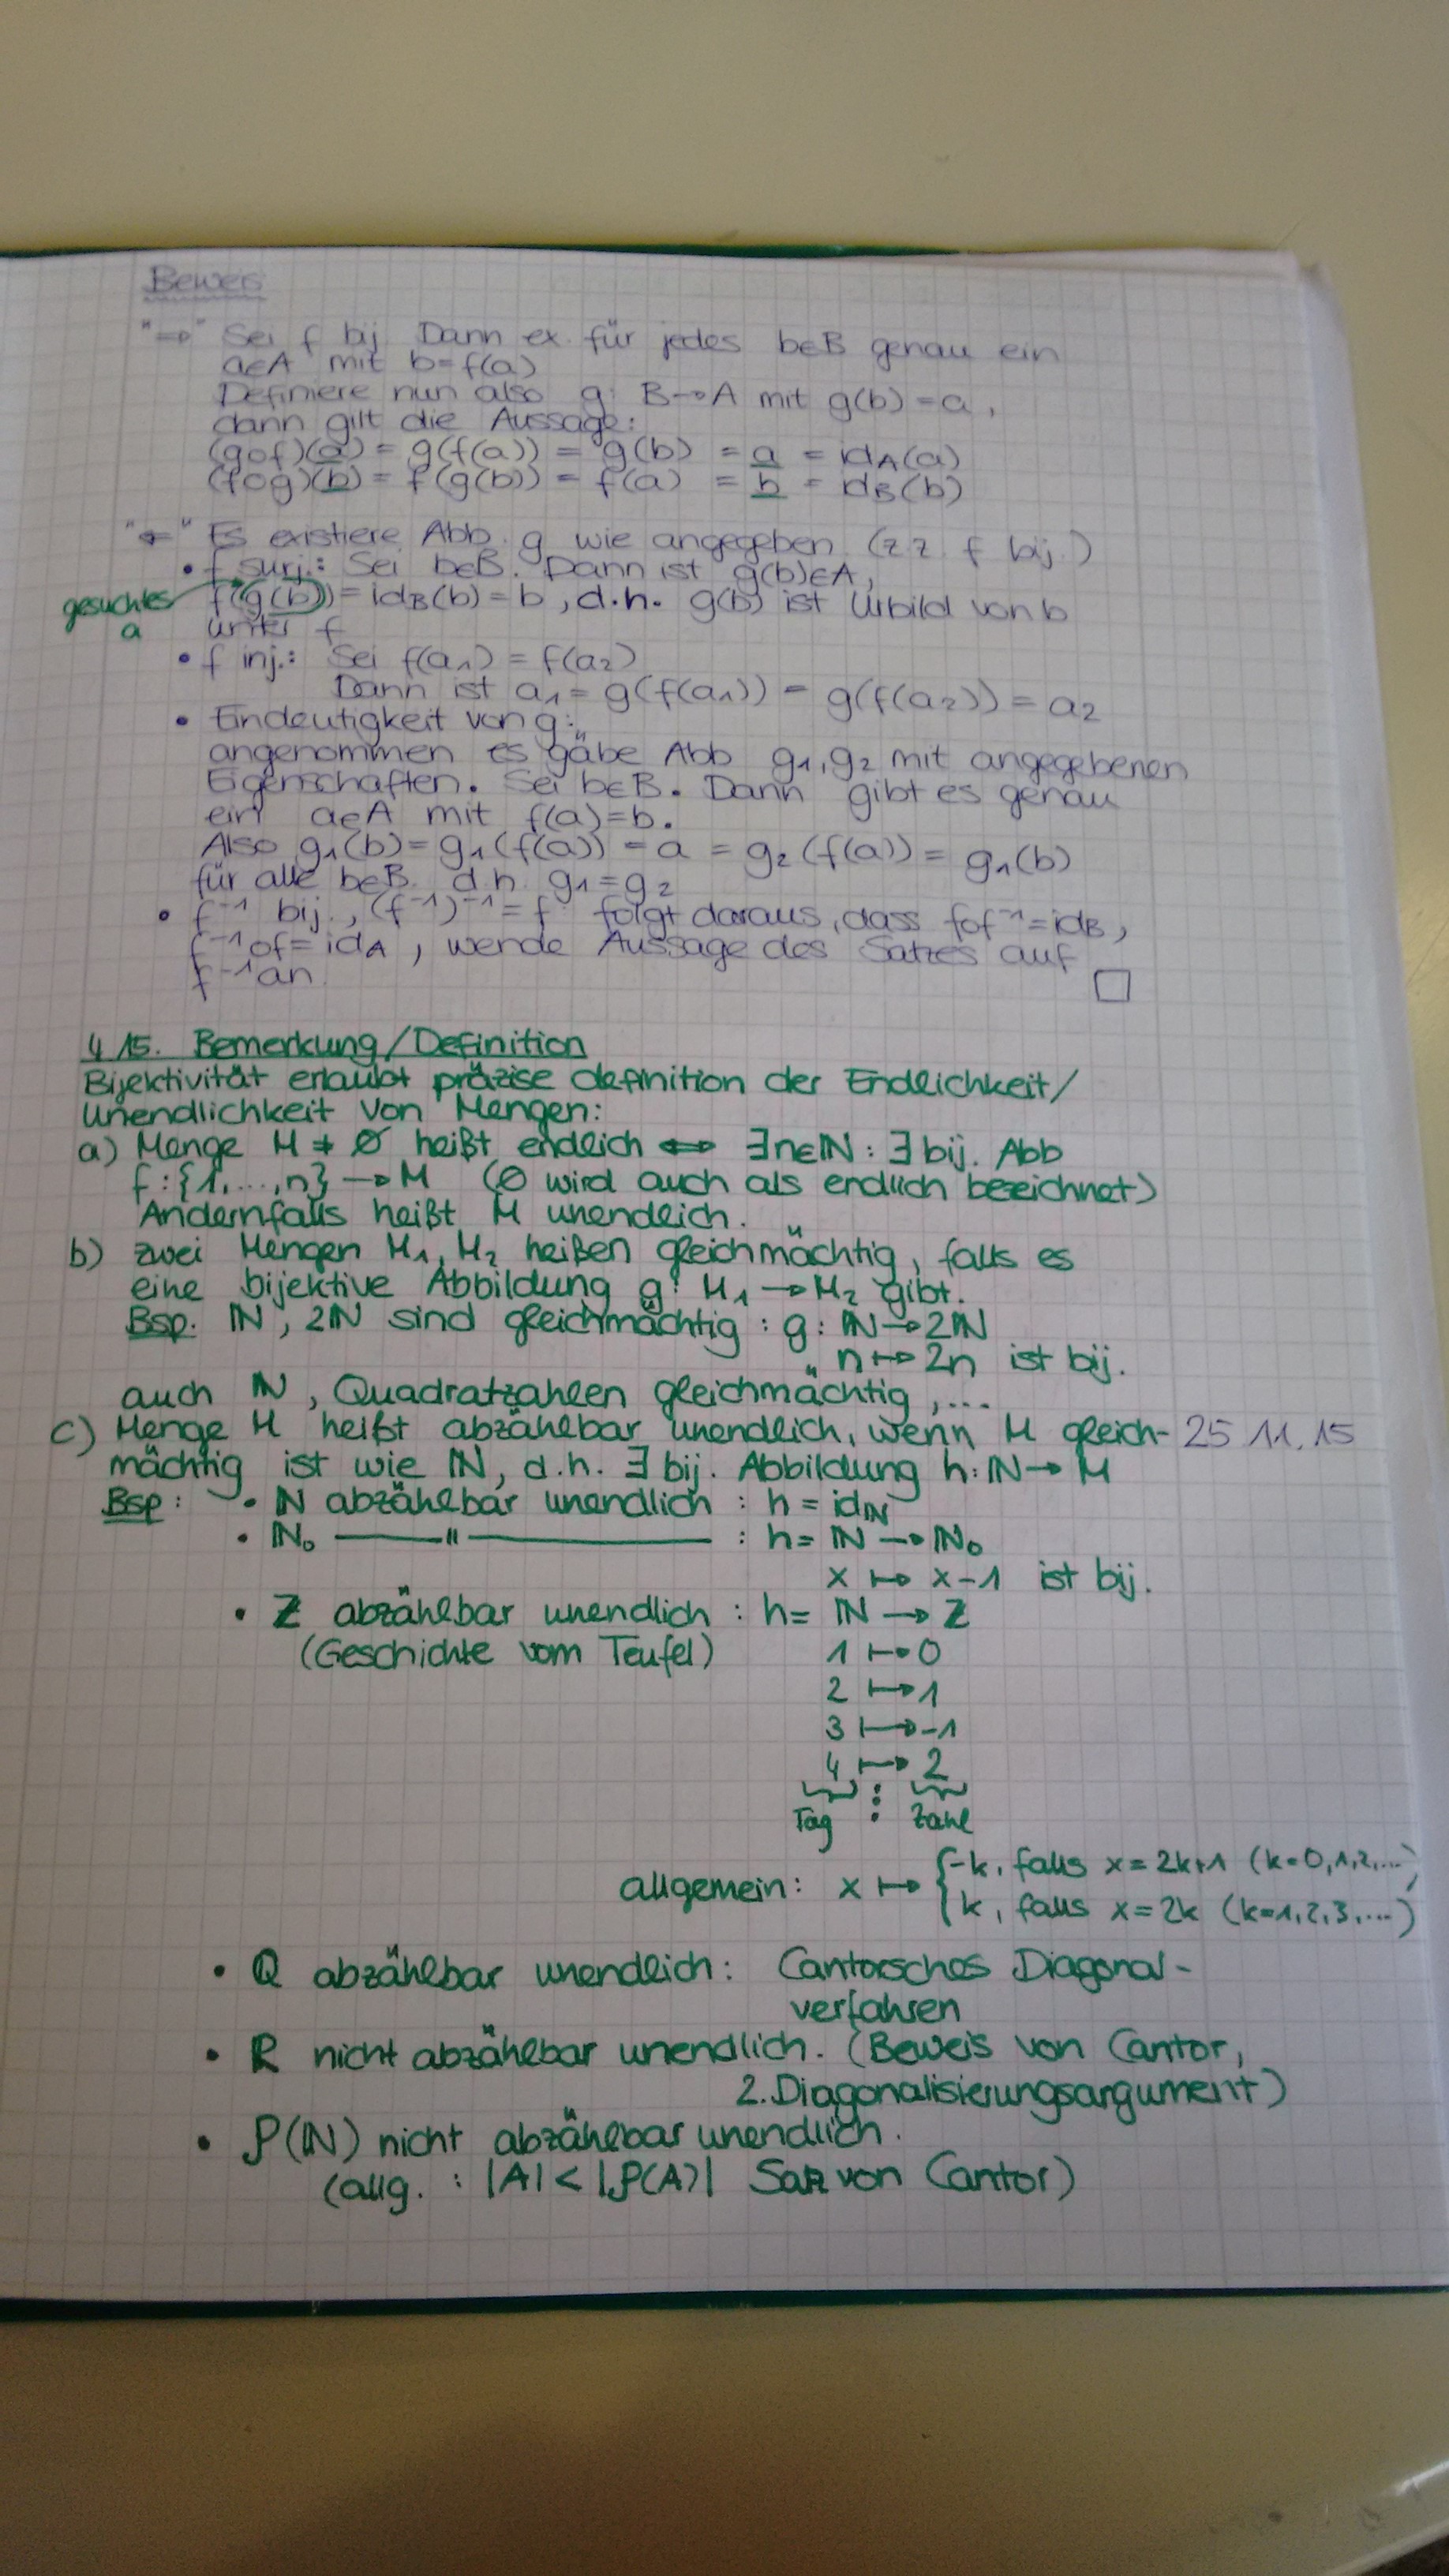 Beweis
"⇒" Sei f bij. Dann ex. für jedes b∈B genau ein
a∈A mit b=f(a)
Definiere nun also g: B→A mit g(b)=a,
dann gilt die Aussage:
(g∘f)(a) = g(f(a)) = g(b) = a = id_A(a)
(f∘g)(b) = f(g(b)) = f(a) = b = id_B(b)
"⇐" Es existiere Abb. g wie angegeben (z.z. f bij.)
• f surj.: Sei b∈B. Dann ist g(b)∈A,
gesuchtes a
f(g(b)) = id_B(b) = b, d.h. g(b) ist Urbild von b
unter f
• f inj.: Sei f(a₁) = f(a₂)
Dann ist a₁ = g(f(a₁)) = g(f(a₂)) = a₂
• Eindeutigkeit von g:
angenommen es gäbe Abb g₁, g₂ mit angegebenen
Eigenschaften. Sei b∈B. Dann gibt es genau
ein a∈A mit f(a)=b.
Also g₁(b) = g₁(f(a)) = a = g₂(f(a)) = g₁(b)
für alle b∈B. d.h. g₁=g₂
• f⁻¹ bij., (f⁻¹)⁻¹ = f: folgt daraus, dass f∘f⁻¹ = id_B,
f⁻¹∘f = id_A, wende Aussage des Satzes auf
f⁻¹ an. □
4.15. Bemerkung/Definition
Bijektivität erlaubt präzise definition der Endlichkeit/
Unendlichkeit von Mengen:
a) Menge M ≠ ∅ heißt endlich ⇔ ∃n∈ℕ: ∃ bij. Abb
f: {1,...,n} → M (∅ wird auch als endlich bezeichnet)
Andernfalls heißt M unendlich.
b) zwei Mengen M₁, M₂ heißen gleichmächtig, falls es
eine bijektive Abbildung g: M₁→M₂ gibt.
Bsp. ℕ, 2ℕ sind gleichmächtig: g: ℕ→2ℕ
n ↦ 2n ist bij.
auch ℕ, Quadratzahlen gleichmächtig,...
c) Menge M heißt abzählbar unendlich, wenn M gleich- 25.11.15
mächtig ist wie ℕ, d.h. ∃ bij. Abbildung h: ℕ→M
Bsp: • ℕ abzählbar unendlich: h = id_ℕ
• ℕ₀ ——"—— : h = ℕ → ℕ₀
x ↦ x-1 ist bij.
• ℤ abzählbar unendlich: h = ℕ → ℤ
(Geschichte vom Teufel) 1 ↦ 0
2 ↦ 1
3 ↦ -1
4 ↦ 2
Tag ⋮ Zahl
allgemein: x ↦ { -k, falls x=2k+1 (k=0,1,2,...)
k, falls x=2k (k=1,2,3,...)
• ℚ abzählbar unendlich: Cantorsches Diagonal-
verfahren
• ℝ nicht abzählbar unendlich. (Beweis von Cantor,
2. Diagonalisierungsargument)
• 𝒫(ℕ) nicht abzählbar unendlich.
(allg. : |A| < |𝒫(A)| Satz von Cantor)